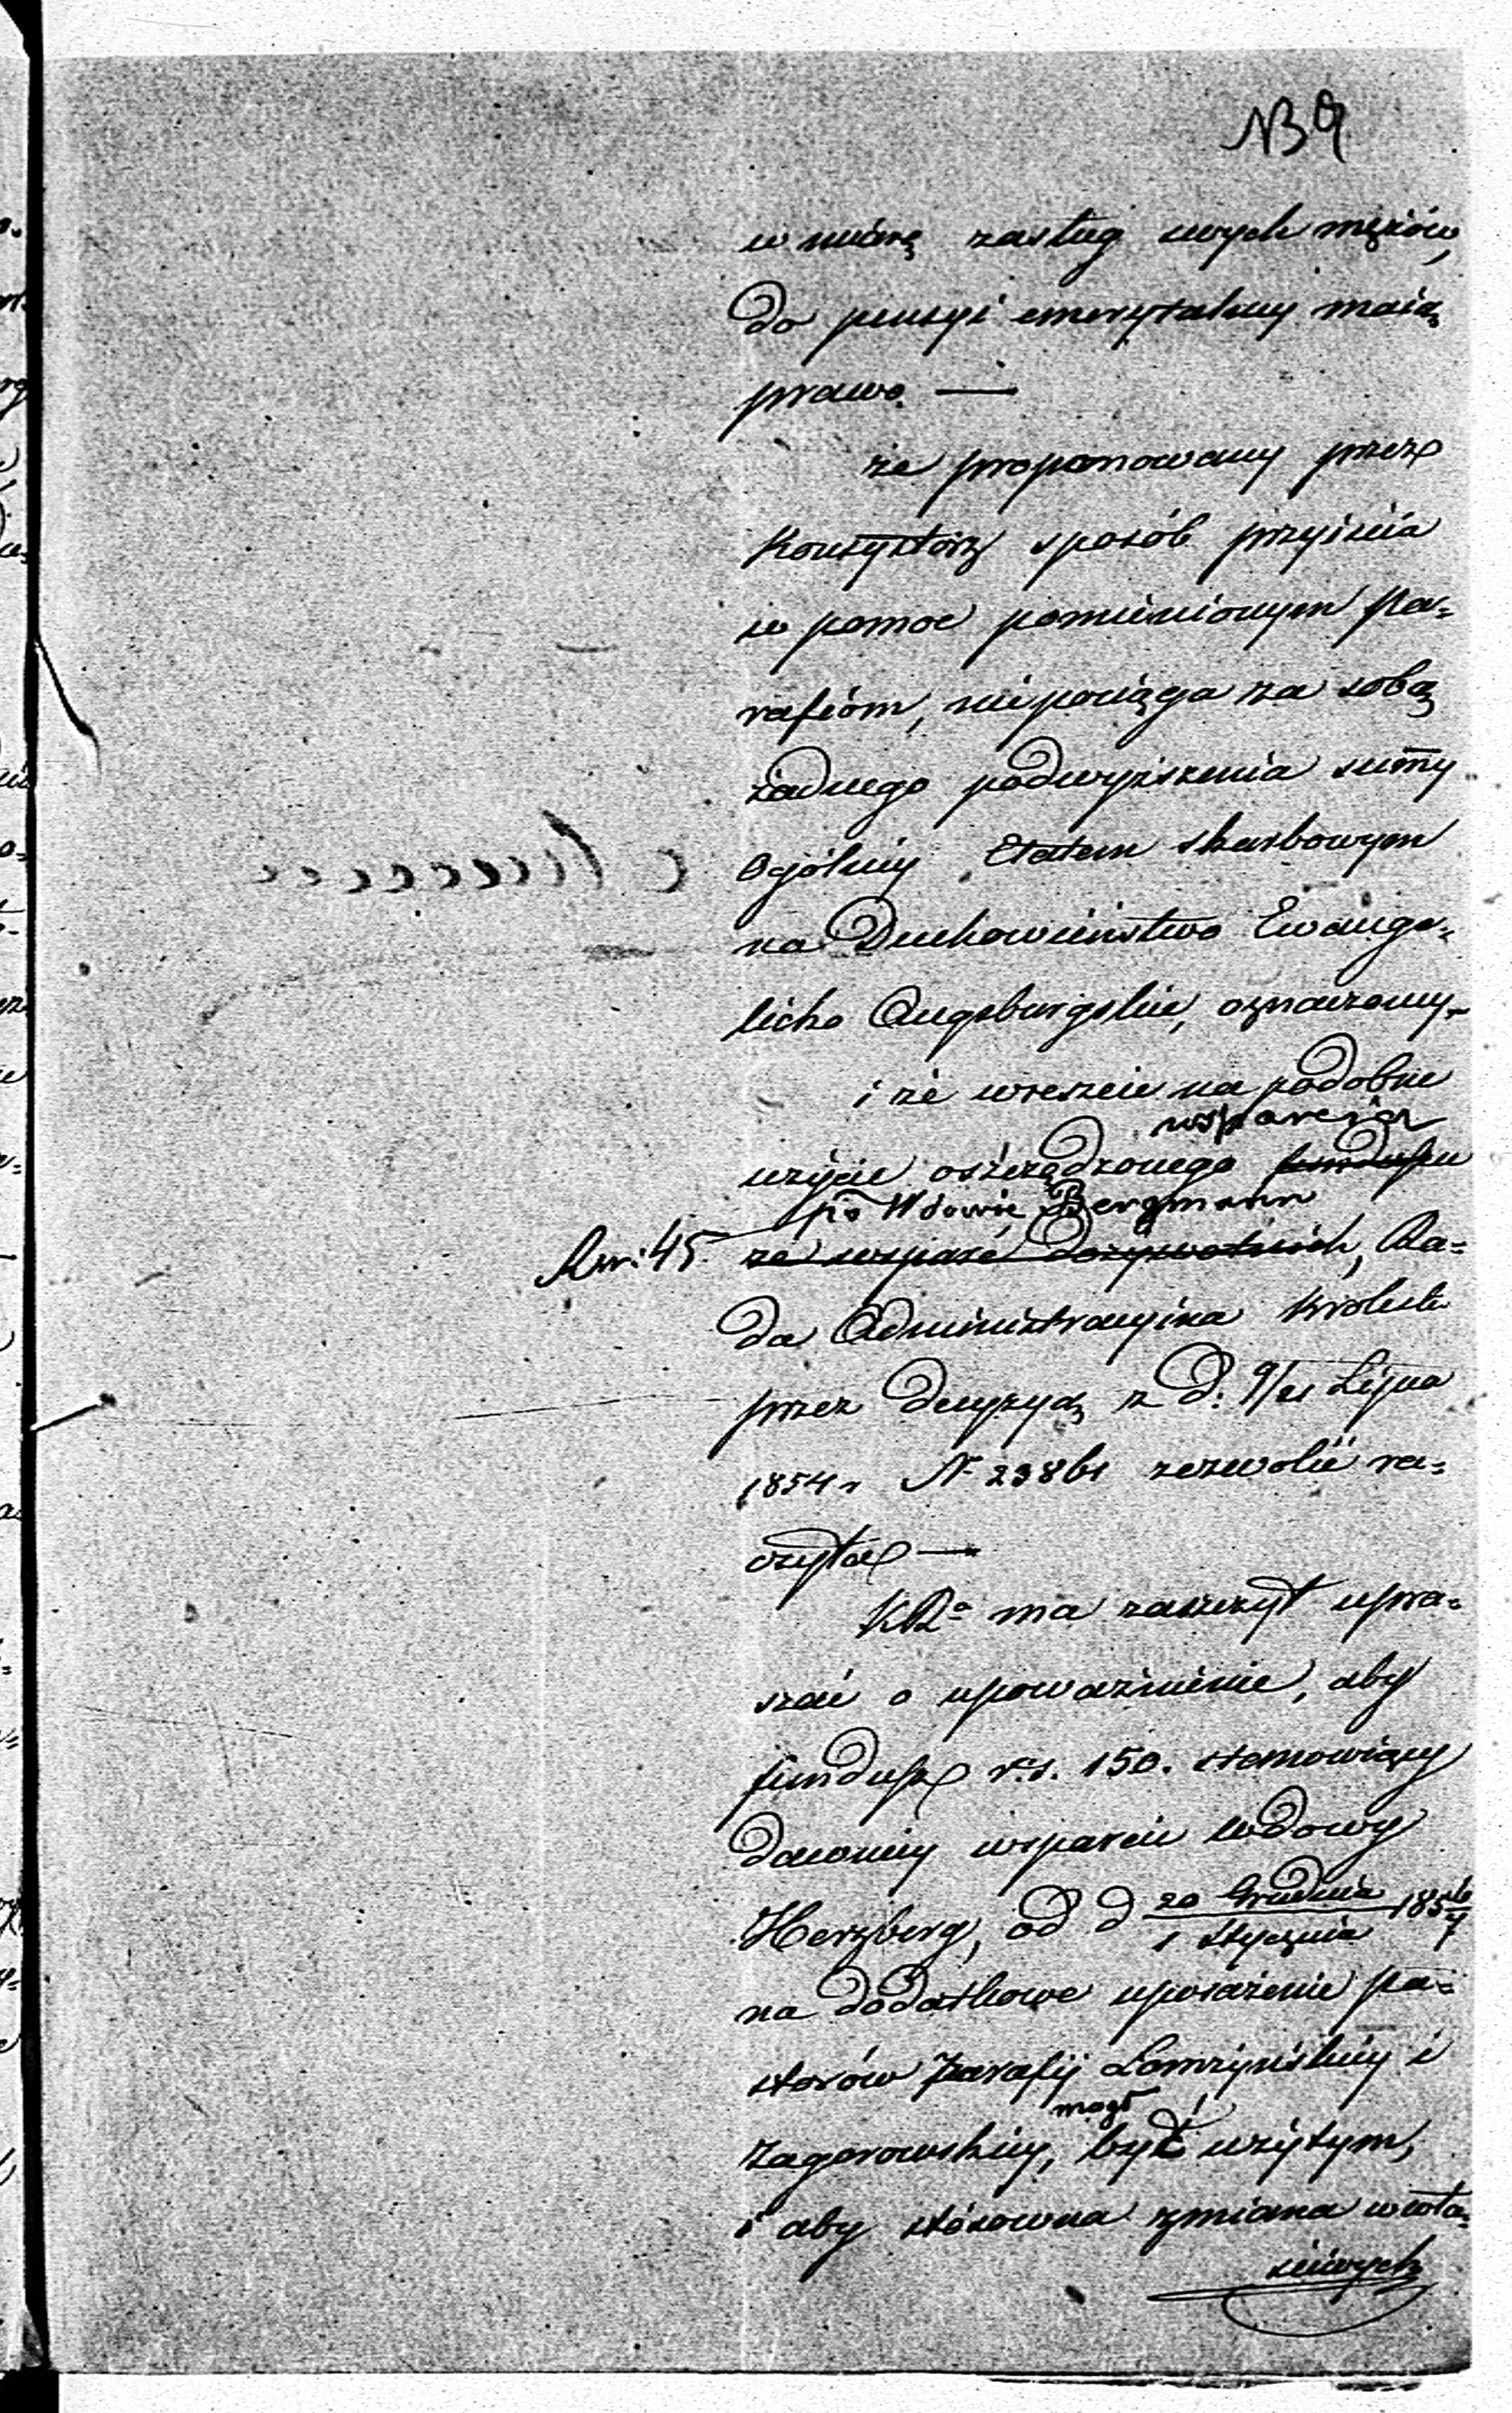 NB 9
w miarę zasług swych mężów,
do pensyi emerytalney maią
prawo. —
że proponowany przez
Konsystorz sposób przyiścia
w pomoc pomienionym Pa=
rafiom, niepociąga za sobą
żadnego podwyższenia sum̄y
ogólney Etatem skarbowym
na Duchowieństwo Ewange=
licko Augsburgskie, oznaczoney.
i że wreszcie na podobne
wsparcia
użycie oszczędzonego funduszu
po Wdowie Bergmann
ze wsparć dożywotnich, Ra=
da Administracyina Królestw
przez decyzyą z d. 9/21 Lipca
1854 r N 23861 zezwolić ra=
czyła —
KR ma zaszczyt upra=
szać o upoważnienie, aby
fundusz rs. 150. stanowiący
dawniey wsparcie wdowy
Herzberg, od d 20 Grudnia / 1 Stycznia 1856/7
na dodatkowe uposażenie pa=
storów Parafij Łomżyńskiey i
mógł
Zagorowskiey, być użytym,
i aby stósowna zmiana w wła=
ściwych